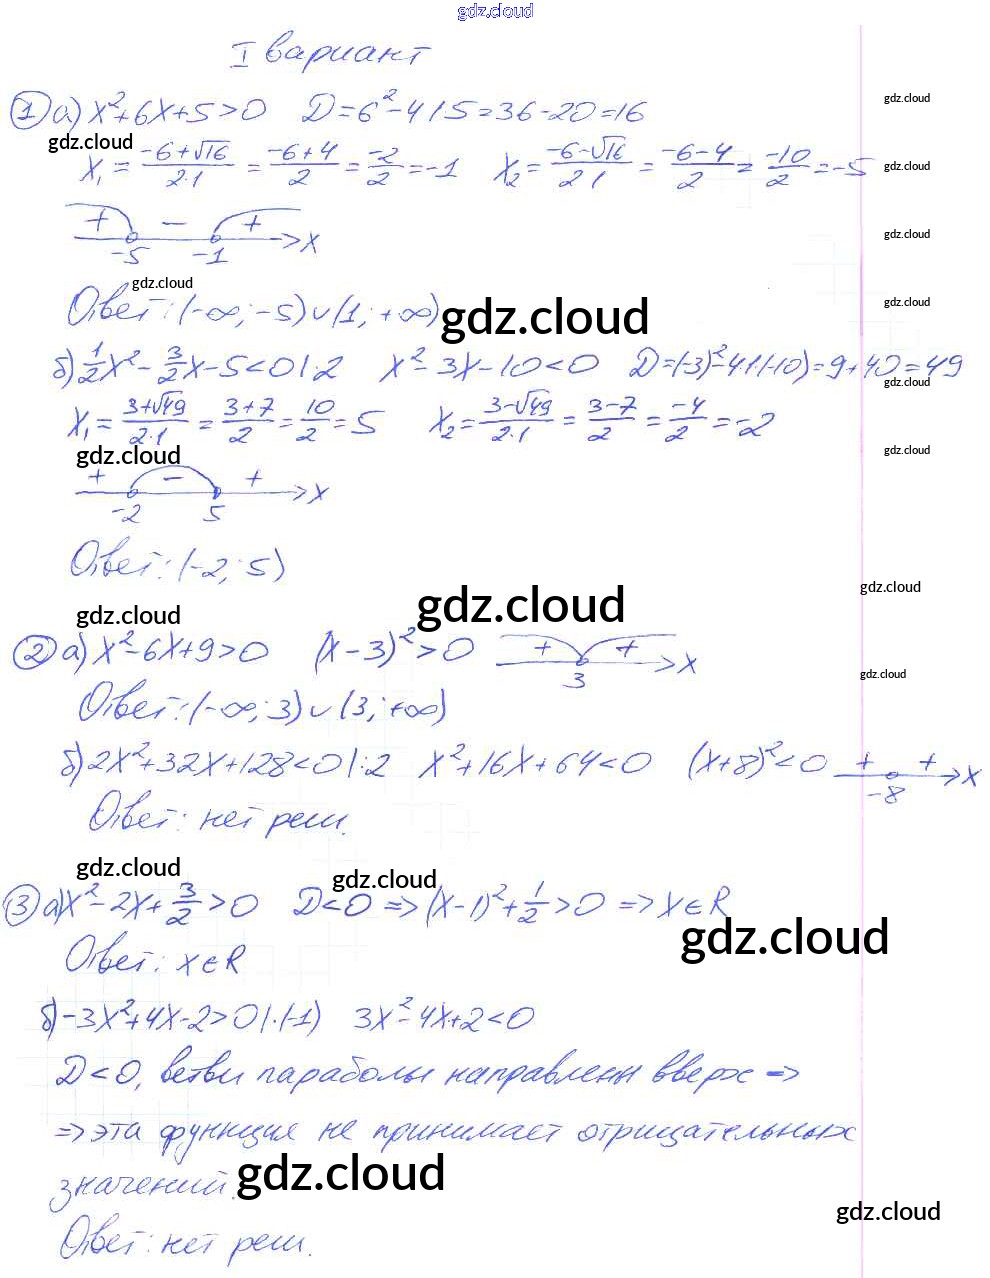 gdz.cloud
I вариант
① а) x²+6x+5>0 D=6²-4·1·5=36-20=16
gdz.cloud
gdz.cloud
x₁ = (-6+√16)/(2·1) = (-6+4)/2 = -2/2 = -1 x₂ = (-6-√16)/(2·1) = (-6-4)/2 = -10/2 = -5
gdz.cloud
+ - + x
gdz.cloud
-5 -1
gdz.cloud
Ответ: (-∞; -5) ∪ (1; +∞)
gdz.cloud
gdz.cloud
б) 1/2x² - 3/2x - 5<0 |·2 x²-3x-10<0 D=(-3)²-4·1·(-10)=9+40=49
gdz.cloud
x₁ = (3+√49)/(2·1) = (3+7)/2 = 10/2 = 5 x₂ = (3-√49)/(2·1) = (3-7)/2 = -4/2 = -2
gdz.cloud
gdz.cloud
+ - + x
-2 5
Ответ: (-2; 5)
gdz.cloud
gdz.cloud
gdz.cloud
② а) x²-6x+9>0 (x-3)²>0 + + x
3
gdz.cloud
Ответ: (-∞; 3) ∪ (3; +∞)
б) 2x²+32x+128<0 |:2 x²+16x+64<0 (x+8)²<0 + + x
-8
Ответ: нет реш.
gdz.cloud
gdz.cloud
③ а) x²-2x+3/2>0 D<0 => (x-1)²+1/2>0 => x∈R
gdz.cloud
Ответ: x∈R
б) -3x²+4x-2>0 |·(-1) 3x²-4x+2<0
D<0, ветви параболы направлены вверх =>
=> эта функция не принимает отрицательных
gdz.cloud
значений.
gdz.cloud
Ответ: нет реш.